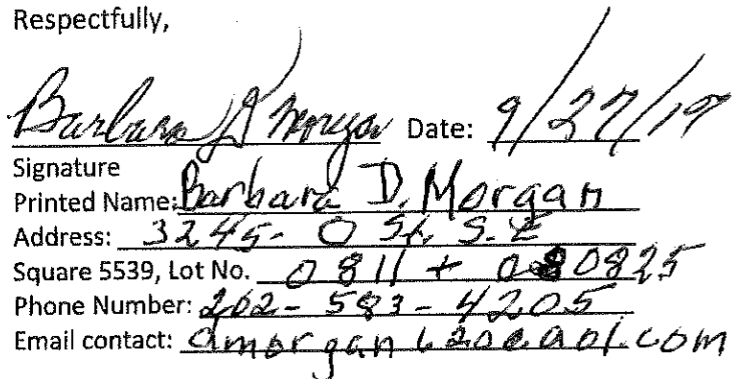 Respectfully,
Barbara D Morgan Date: 9/27/19
Signature
Printed Name: Barbara D. Morgan
Address: 3245- O St. S.E
Square 5539, Lot No. 0811 + 0825
Phone Number: 202-583-4205
Email contact: